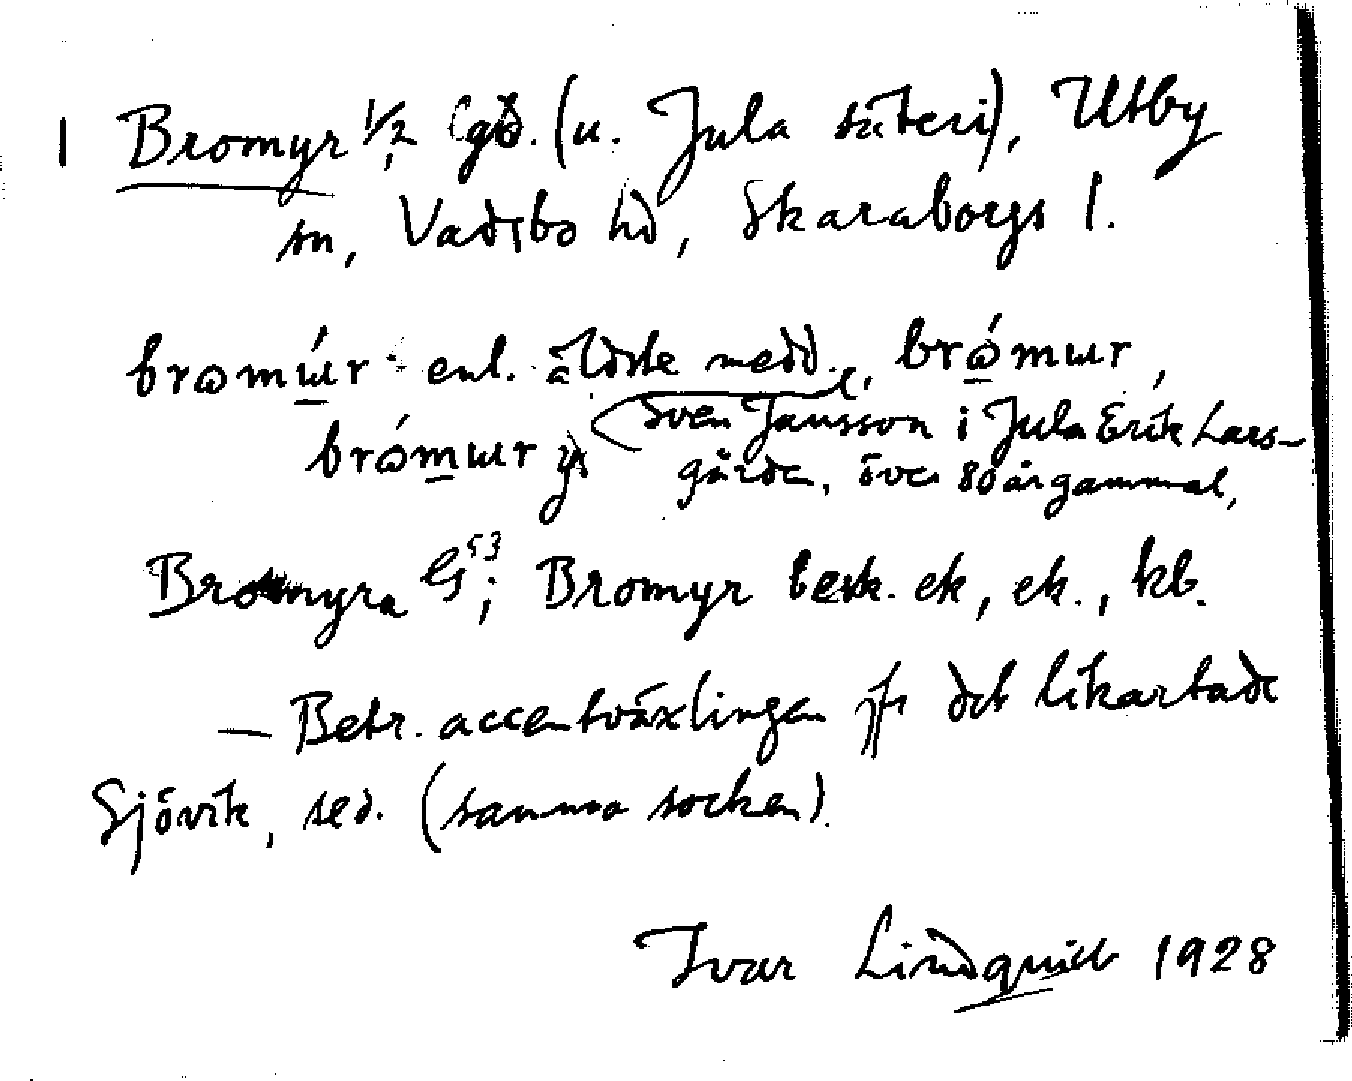 1 Bromyr 1/2 lgd. (u. Jula säteri), Utby
sn, Vadsbo hd, Skaraborgs l.
bromúr enl. äldste medd., brómur,
(Sven Jansson i Jula Erik Lars-
brómur yr
gårde, över 80 år gammal,
Bromyra G⁵³; Bromyr besk. ek, ek., kb.
— Betr. accentväxlingen jfr det likartade
Sjövik, sed. (samma socken).
Ivar Lindquist 1928